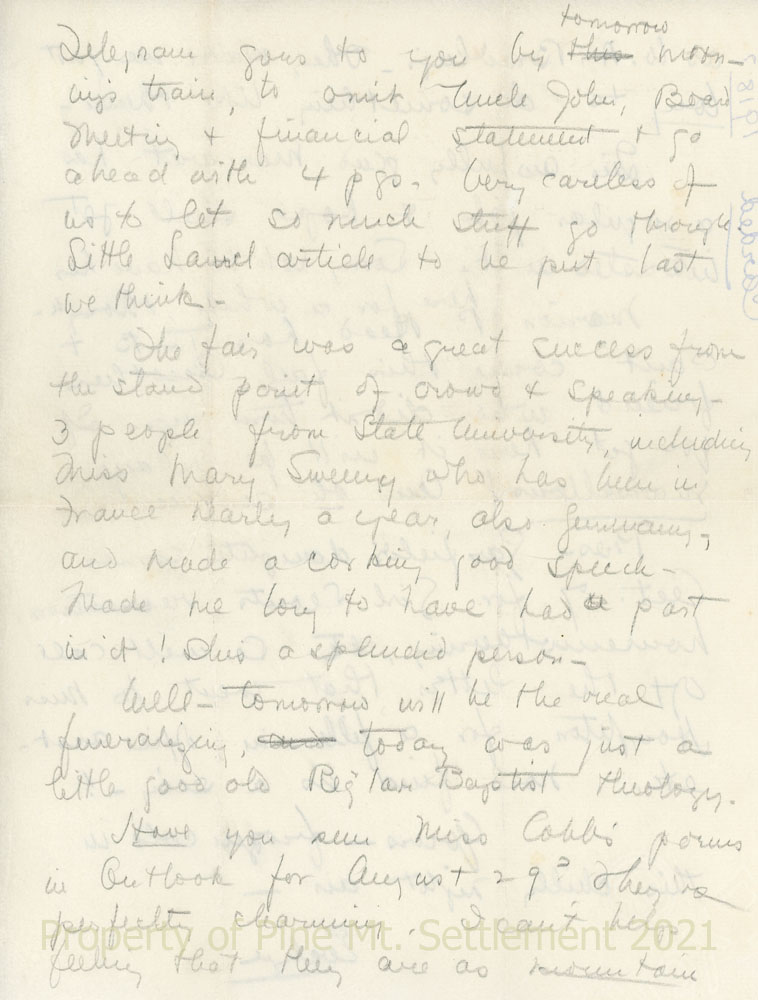 tomorrow
Telegram goes to you by this morn-
ings train, to omit Uncle John, Board
Meeting & financial statement & go
ahead with 4 pgs. Very careless of
us to let so much stuff go through
Little Laurel article to be put last
we think -
The fair was a great success from
the stand point of crowd & speaking -
3 people from State University, including
Miss Mary Sweeny who has been in
France nearly a year, also Germany,
and made a corking good speech -
Made me long to have had a part
in it! She's a splendid person -
Well - tomorrow will be the real
funeralizing, and today was just a
little good old Reg'lar Baptist theology.
Have you seen Miss Cobb's poems
in Outlook for August 29? They're
perfectly charming. I can't help
feeling that they are as mountain
Property of Pine Mt. Settlement 2021